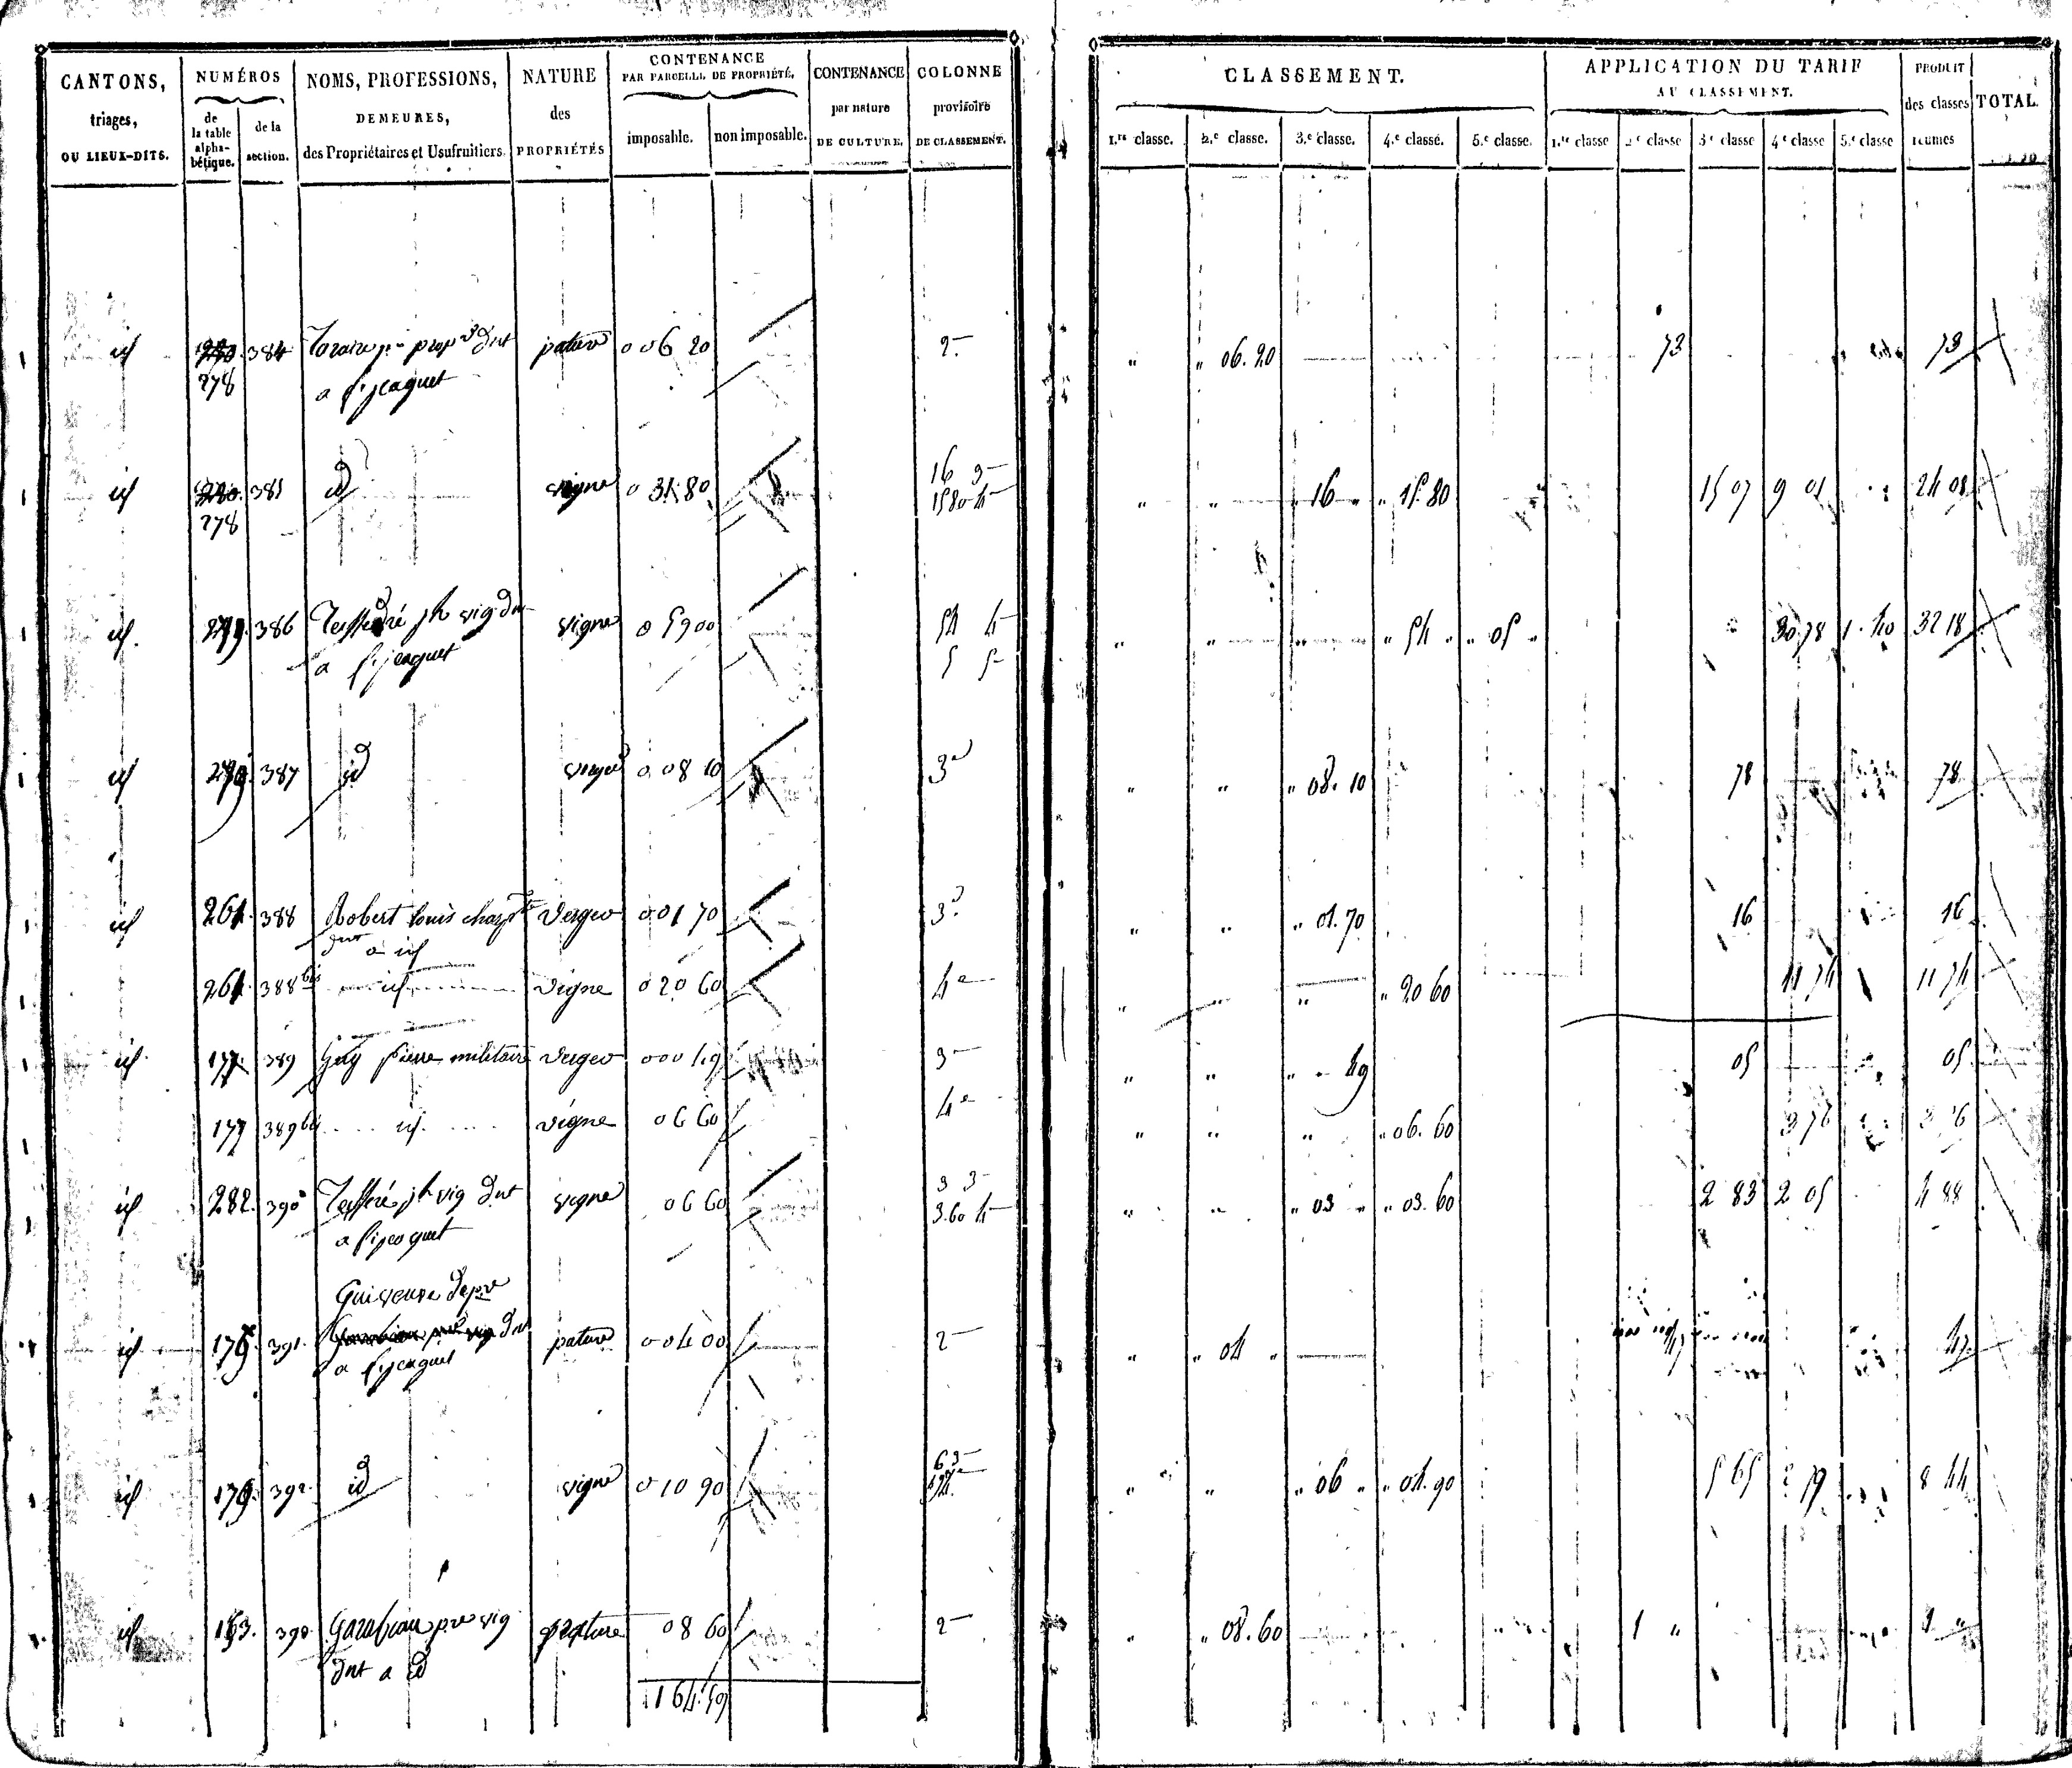 CANTONS, triages, OU LIEUX-DITS. NUMÉROS de la table alphabétique. de la section. NOMS, PROFESSIONS, DEMEURES, des Propriétaires et Usufruitiers. NATURE des PROPRIÉTÉS CONTENANCE PAR PARCELLE DE PROPRIÉTÉ. imposable. non imposable. CONTENANCE par nature DE CULTURE. COLONNE provisoire DE CLASSEMENT.
CLASSEMENT. 1.re classe. 2.e classe. 3.e classe. 4.e classe. 5.e classe. APPLICATION DU TARIF AU CLASSEMENT. 1.re classe 2.e classe 3.e classe 4.e classe 5.e classe PRODUIT des classes réunies TOTAL.
id 384 prop.re dnt pature 0 06 20 2- " " 06.20 73 73
278 a
id 385 id vigne 0 31 80 16 3- " " 16 " 15.80 15 07 9 01 24 08
278 15 80 4-
id 279 386 jh vig dnt vigne 0 59 00 54 4- " " " 54 " " 05 " 30 78 1 40 32 18
a 5 5-
id 279 387 id 0 08 10 3e " " " 08.10 78 78
id 261 388 Robert louis verger 0 01 70 3e " " " 01.70 16 16
dnt a id
261 388 bis id vigne 0 20 60 4e " " " " 20 60 11 74 11 74
id 177 389 Guy pierre militaire verger 0 00 49 3- " " " 49 05 05
177 389 bis id vigne 06 60 4e " " " " 06.60 3 76 3 76
id 282 390 jh vig dnt vigne 06 60 3 3- " " " 03 " " 03.60 2 83 2 05 4 88
a 3.60 4-
Gui veuve
id 391 dnt pature 0 04 00 2- " " 04 " 47 47
a
id 392 id vigne 0 10 90 6 3- " " " 06 " " 04.90 5 65 2 79 8 44
id 163 Garabeau pre vig pature 08 60 2- " " 08.60 1 " 1 "
dnt a id
1 64 59